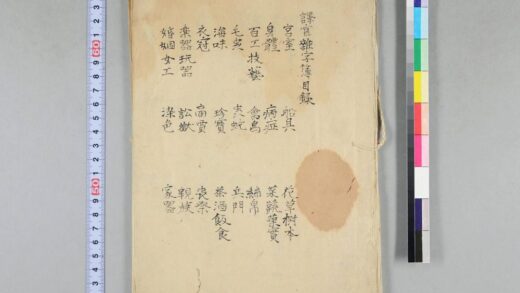 譯官雜字簿目錄
宮室 花草樹木
身體 病症 菜蔬菓實
百工技藝 禽鳥 絲帛
毛 蛇 兵門
海味 珍寶 茶酒飯食
衣冠 商賈 喪祭
樂器玩器 訟獄 親族
婚姻女工 染色 家器